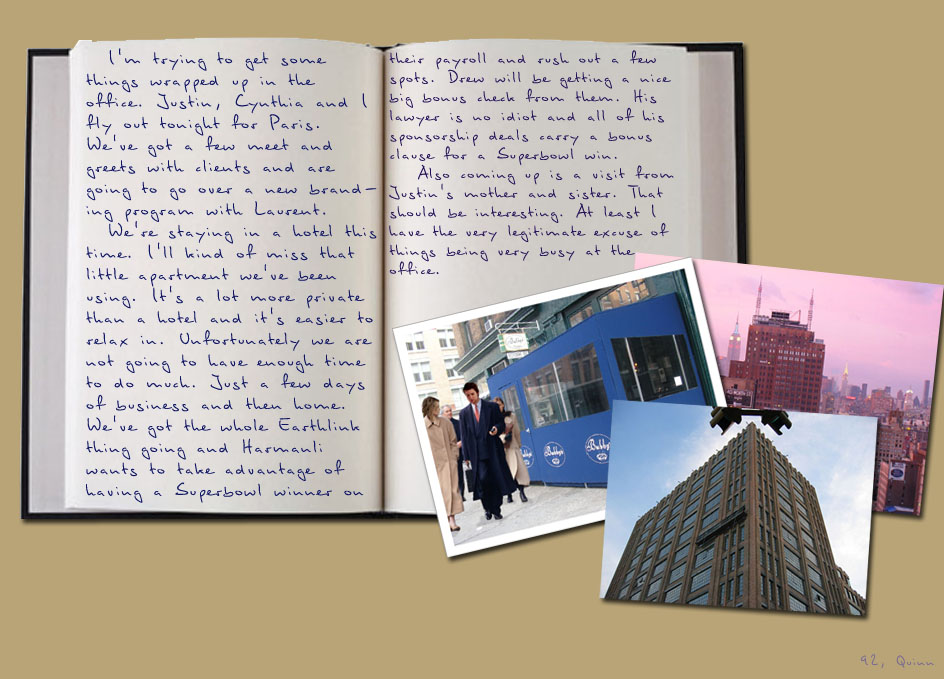 I'm trying to get some
things wrapped up in the
office. Justin, Cynthia and I
fly out tonight for Paris.
We've got a few meet and
greets with clients and are
going to go over a new brand-
ing program with Laurent.
We're staying in a hotel this
time. I'll kind of miss that
little apartment we've been
using. It's a lot more private
than a hotel and it's easier to
relax in. Unfortunately we are
not going to have enough time
to do much. Just a few days
of business and then home.
We've got the whole Earthlink
thing going and Harmanli
wants to take advantage of
having a Superbowl winner on
their payroll and rush out a few
spots. Drew will be getting a nice
big bonus check from them. His
lawyer is no idiot and all of his
sponsorship deals carry a bonus
clause for a Superbowl win.
Also coming up is a visit from
Justin's mother and sister. That
should be interesting. At least I
have the very legitimate excuse of
things being very busy at the
office.
Bubby's
Bubby's
92, Quinn